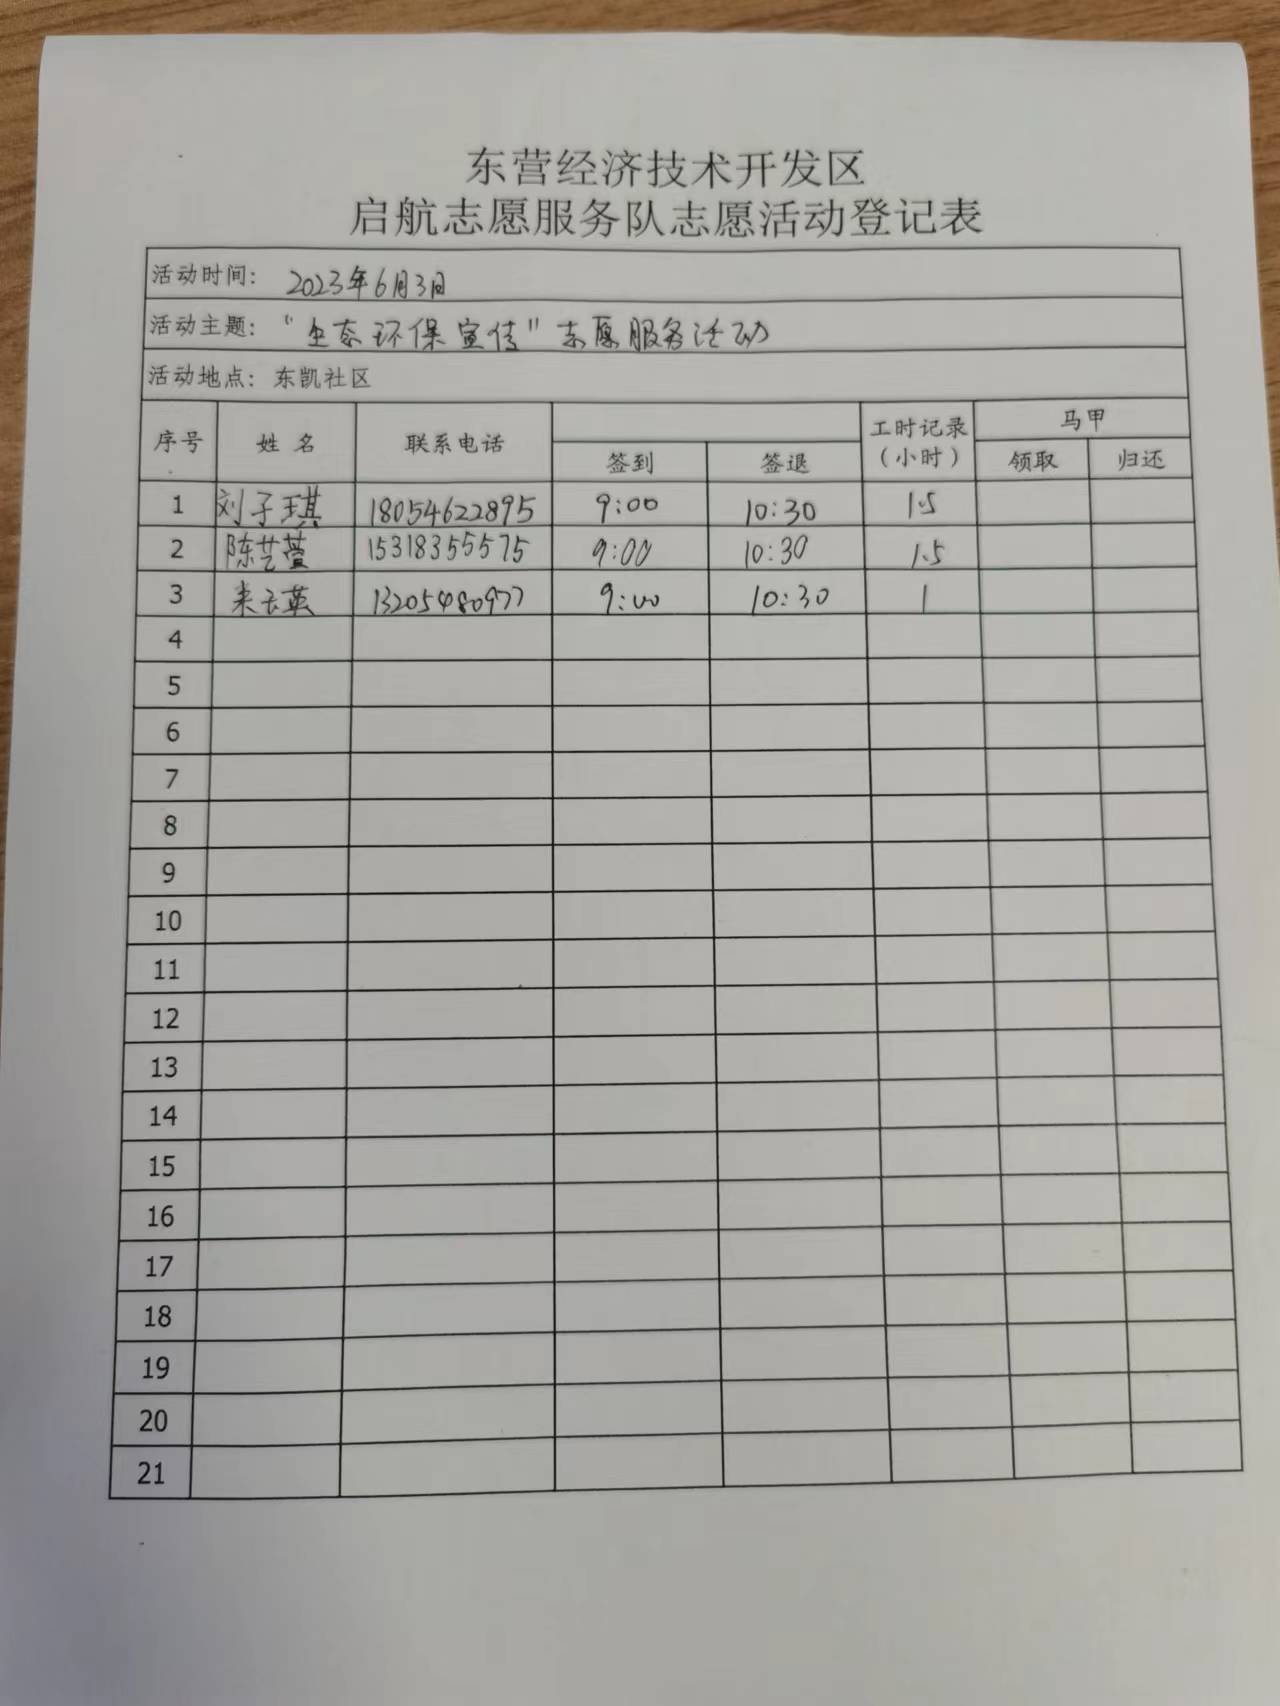 东营经济技术开发区
启航志愿服务队志愿活动登记表
活动时间： 2023年6月3日
活动主题： "生态环保宣传"志愿服务活动
活动地点： 东凯社区
序号 姓 名 联系电话 签到 签退 工时记录（小时） 马甲 领取 归还
1 刘子琪 18054622895 9:00 10:30 1.5
2 陈艺萱 15318355575 9:00 10:30 1.5
3 13205480977 9:00 10:30 1
4
5
6
7
8
9
10
11
12
13
14
15
16
17
18
19
20
21